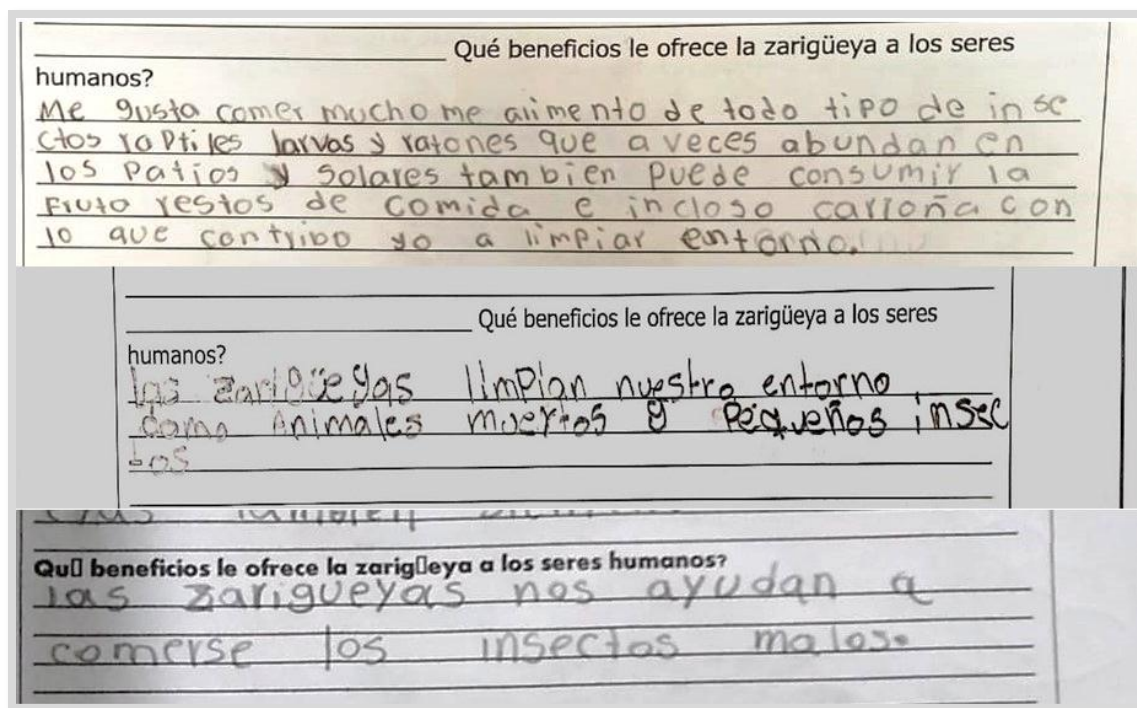 Qué beneficios le ofrece la zarigüeya a los seres
humanos?
Me gusta comer mucho me alimento de todo tipo de inse
ctos raptiles larvas y ratones que a veces abundan en
los patios y solares tambien puede consumir la
fruto restos de comida e incloso carroña con
lo que contribo yo a limpiar entorno.
Qué beneficios le ofrece la zarigüeya a los seres
humanos?
las zarigüeyas limpian nuestro entorno
como Animales muertos y pequeños insec
tos
Qu▯ beneficios le ofrece la zarig▯eya a los seres humanos?
las zarigueyas nos ayudan a
comerse los insectos malos.